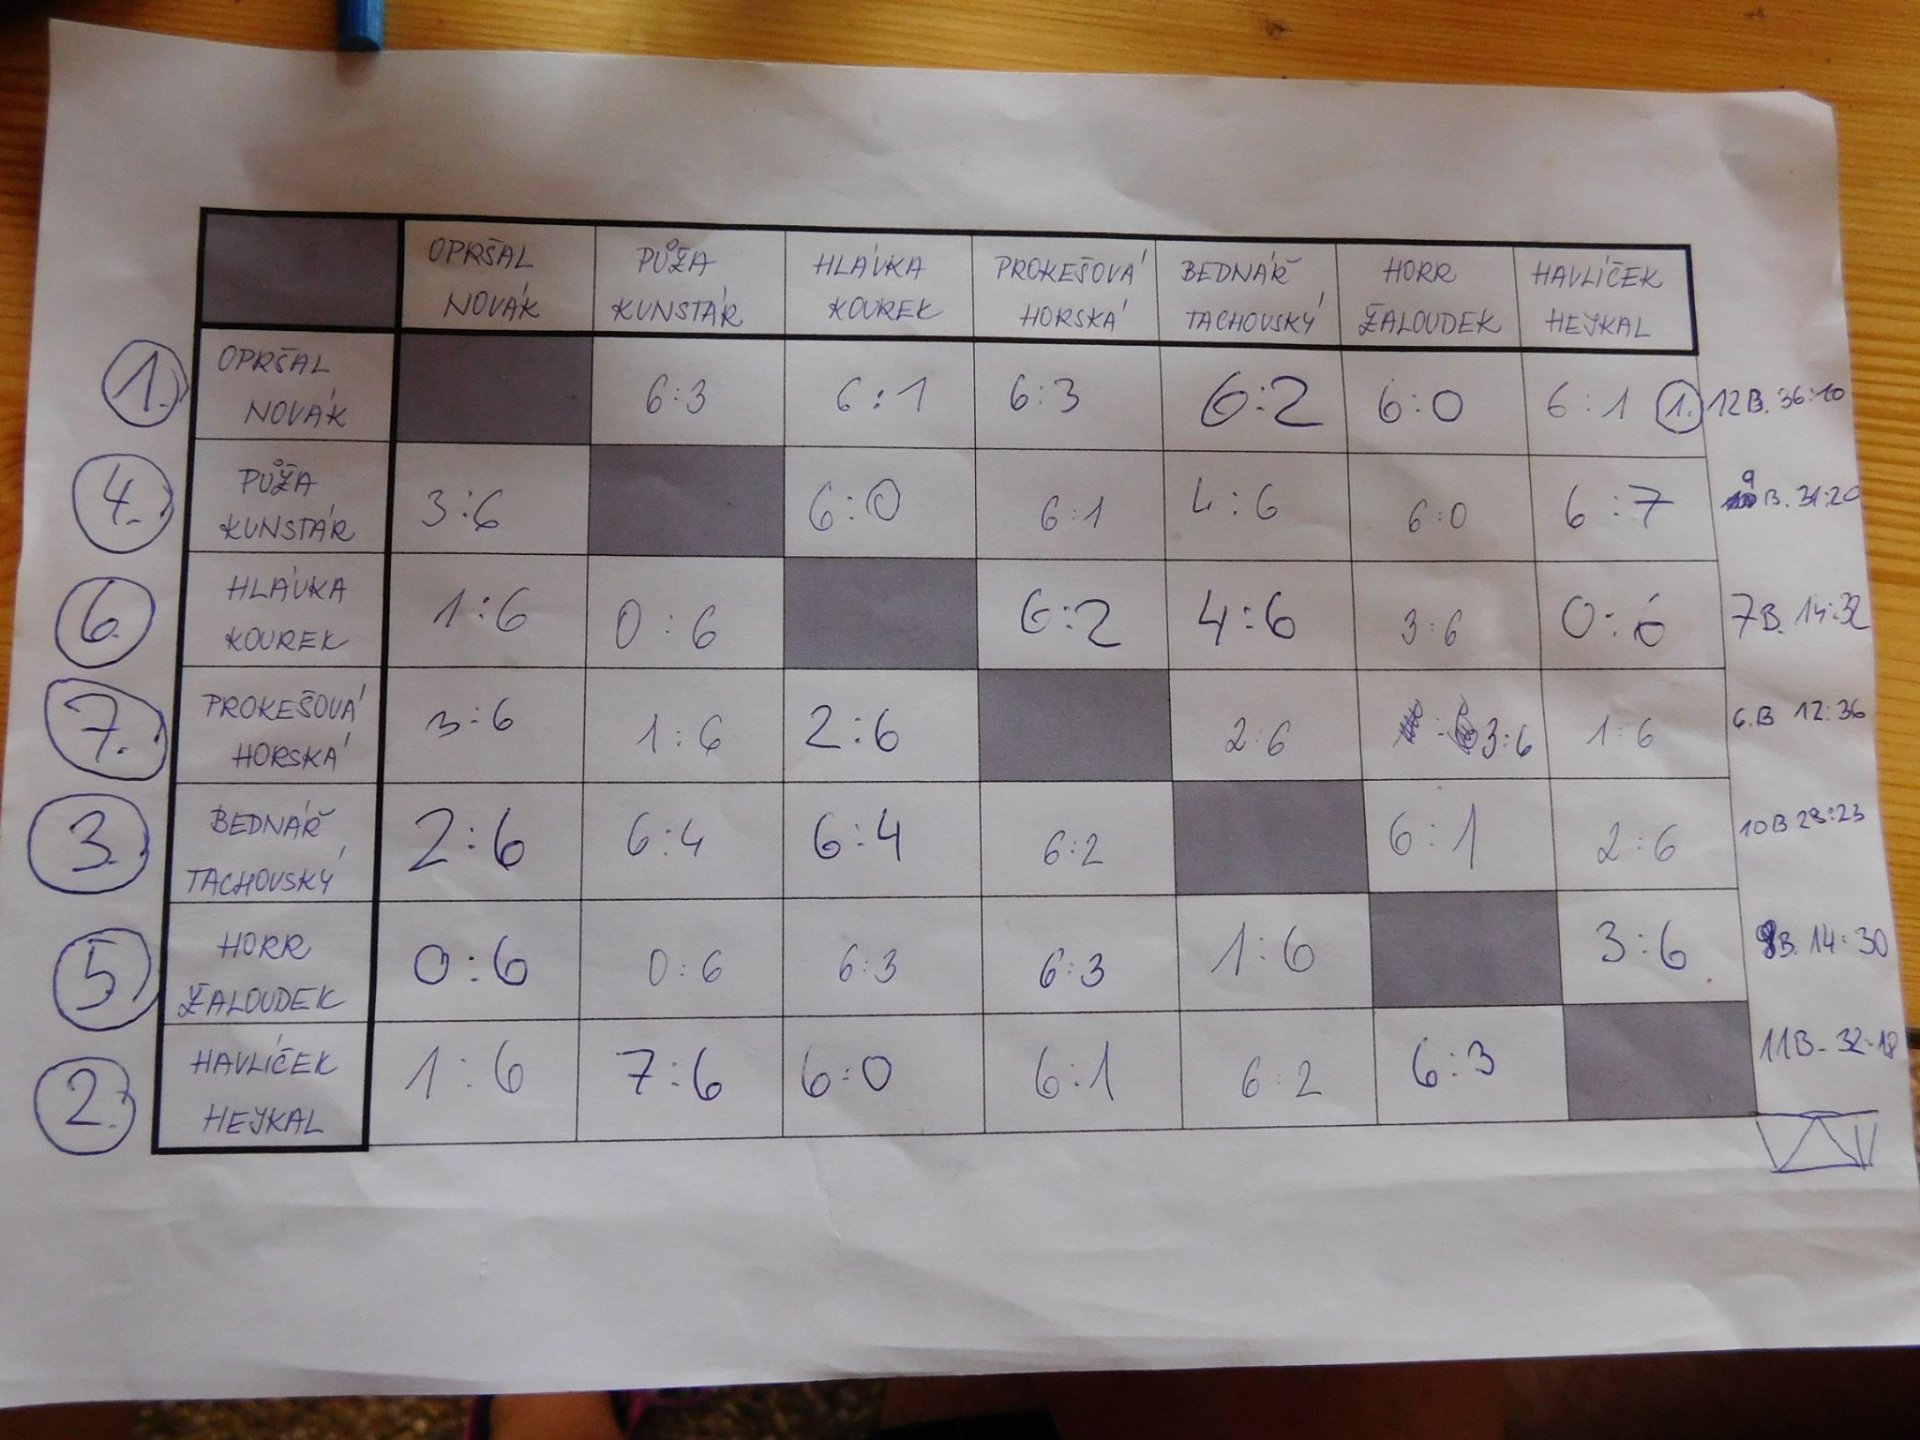 OPRŠAL PŮŽA HLÁVKA PROKEŠOVÁ BEDNÁŘ HORR HAVLÍČEK
NOVÁK KUNSTÁR KOUREK HORSKÁ TACHOVSKÝ ŽALOUDEK HEJKAL
1. OPRŠAL NOVÁK 6:3 6:1 6:3 6:2 6:0 6:1 1. 12B. 36:10
4. PŮŽA KUNSTÁR 3:6 6:0 6:1 4:6 6:0 6:7 9 B. 31:20
6. HLÁVKA KOUREK 1:6 0:6 6:2 4:6 3:6 0:6 7B. 14:32
7. PROKEŠOVÁ HORSKÁ 3:6 1:6 2:6 2:6 3:6 1:6 6.B 12:36
3. BEDNÁŘ TACHOVSKÝ 2:6 6:4 6:4 6:2 6:1 2:6 10B 28:23
5. HORR ŽALOUDEK 0:6 0:6 6:3 6:3 1:6 3:6 8B. 14:30
2. HAVLÍČEK HEJKAL 1:6 7:6 6:0 6:1 6:2 6:3 11B- 32-18